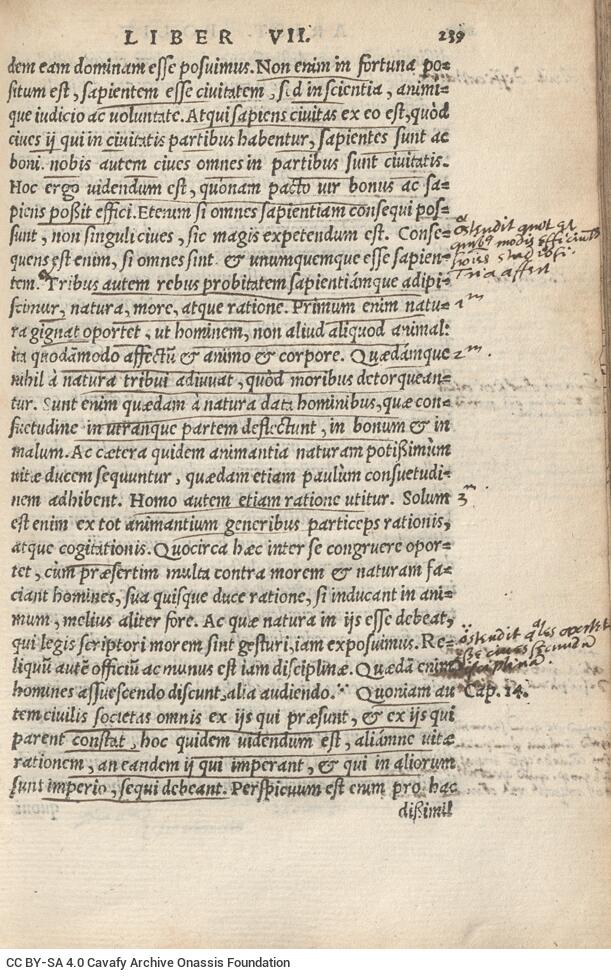 LIBER VII. 239
dem eam dominam esse posuimus. Non enim in fortuna po=
situm est, sapientem esse civitatem, sed in scientia, animi=
que iudicio ac voluntate. Atqui sapiens civitas ex eo est, quòd
cives ij qui in civitatis partibus habentur, sapientes sunt ac
boni. nobis autem cives omnes in partibus sunt civitatis.
Hoc ergo videndum est, quónam pacto vir bonus ac sa=
piens poßit effici. Etenim si omnes sapientiam consequi pos=
sunt, non singuli cives, sic magis expetendum est. Conse=
quens est enim, si omnes sint & unumquemque esse sapien=
tem. Tribus autem rebus probitatem sapientiámque adipi=
scimur, natura, more, atque ratione. Primum enim natu=
ra gignat oportet, ut hominem, non aliud aliquod animal:
ita quodámmodo affectũ & animo & corpore. Quædámque
nihil à natura tribui adiuvat, quòd moribus detorquean=
tur. Sunt enim quædam à natura data hominibus, quæ con=
suetudine in utranque partem deflectunt, in bonum & in
malum. Ac cætera quidem animantia naturam potißimùm
vitæ ducem sequuntur, quædam etiam paulùm consuetudi=
nem adhibent. Homo autem etiam ratione utitur. Solum
est enim ex tot animantium generibus particeps rationis,
atque cogitationis. Quocirca hæc inter se congruere opor=
tet, cùm præsertim multa contra morem & naturam fa=
ciant homines, sua quisque duce ratione, si inducant in ani=
mum, melius aliter fore. Ac quæ natura in ijs esse debeat,
qui legis scriptori morem sint gesturi, iam exposuimus. Re=
liquũ autẽ officiũ ac munus est iam disciplinæ. Quædã enim
homines assuescendo discunt, alia audiendo. Quoniam au
tem civilis societas omnis ex ijs qui præsunt, & ex ijs qui
parent constat, hoc quidem videndum est, aliámne vitæ
rationem, an eandem ij qui imperant, & qui in aliorum
sunt imperio, sequi debeant. Perspicuum est enim pro hac
dißimil
ostendit quot et
modis
Tria
1m
2m.
3m
ostendit
disciplina.
Cap. 14.
CC BY-SA 4.0 Cavafy Archive Onassis Foundation